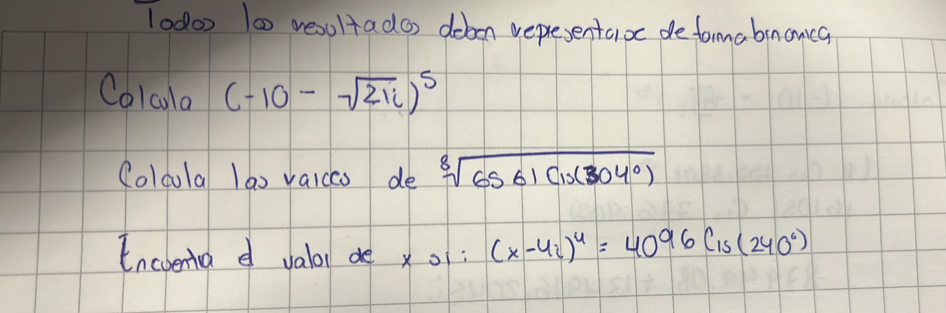 Todos los resultados deben representarse de forma binomica
Calcula (-10 - √21i)^5
Calcula las raices de ⁸√6561 Cis(304°)
Encuentra el valor de x si: (x-4i)^4 = 4096 Cis(240°)